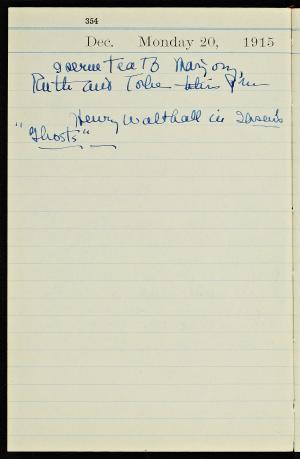 354
Dec. Monday 20, 1915
I serve tea to Marjory,
Ruth and Tobe this P.m
Henry Walthall in Ibsen's
"Ghosts"